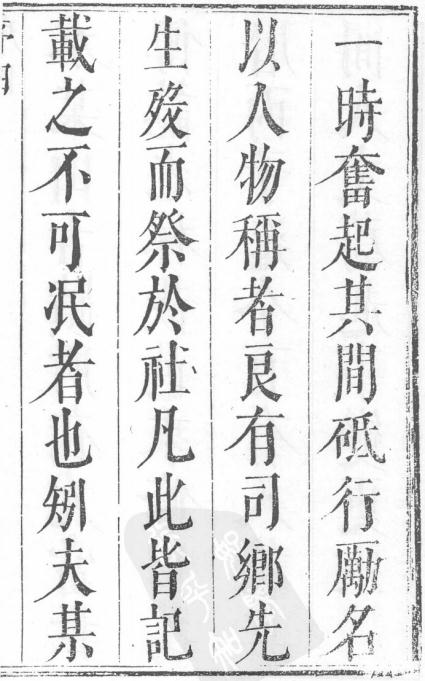 一時奮起其間砥行勵名
以人物稱者良有司鄉先
生歿而祭於社凡此皆記
載之不可泯者也矧夫某